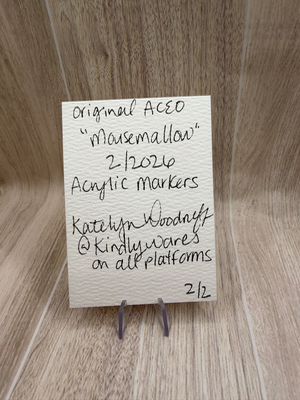 original ACEO
"Mousemallow"
2/2026
Acrylic Markers
Katelyn Woodruff
@Kindlywares
on all platforms
2/2